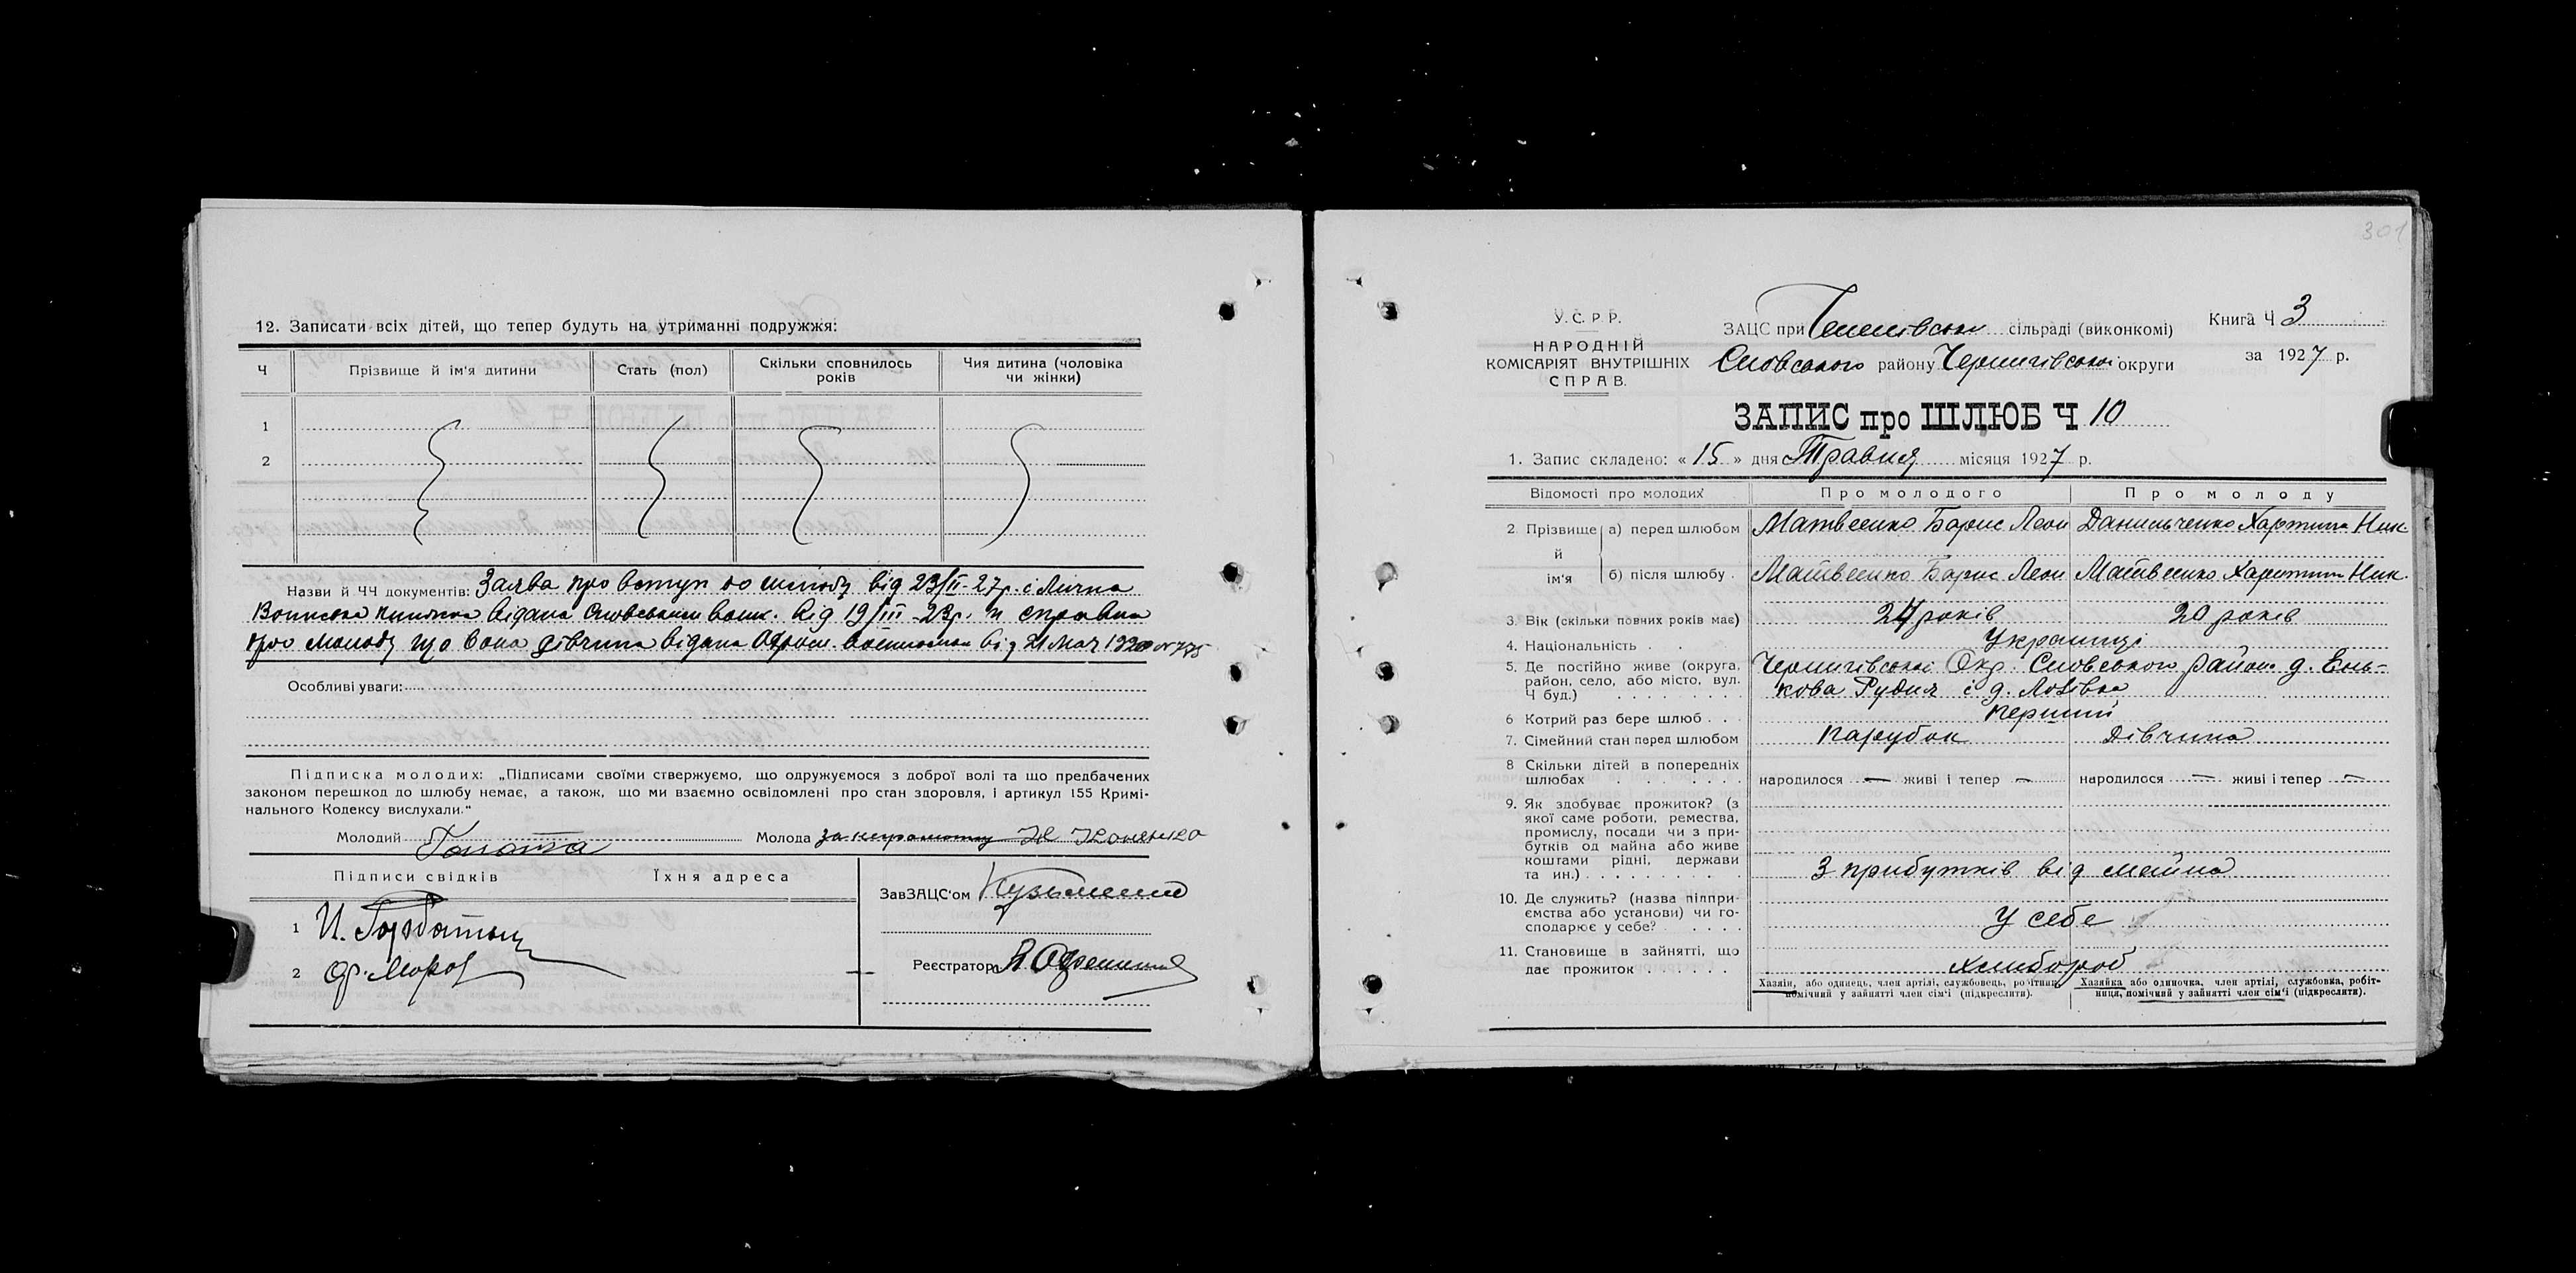 12. Записати всіх дітей, що тепер будуть на утриманні подружжя:
Ч Прізвище й ім'я дитини Стать (пол) Скільки сповнилось років Чия дитина (чоловіка чи жінки)
1
2
Назви й ЧЧ документів: Заява про вступ до шлюбу від 23/II-27р. і Лична
книжка відана Сновським від 19/III-23р. и справка
про молоду що вона дівчина відана від 21
Особливі уваги:
Підписка молодих: „Підписами своїми стверджуємо, що одружуємося з доброї волі та що предбачених
законом перешкод до шлюбу немає, а також, що ми взаємно освідомлені про стан здоровля, і артикул 155 Кримі-
нального Кодексу вислухали."
Молодий Молода
Підписи свідків Їхня адреса
ЗавЗАЦС'ом Кузьменко
1 И. Горбатый
Реєстратор
2 Ф. Мороз
301
У.С.Р.Р.
НАРОДНІЙ
КОМІСАРІЯТ ВНУТРІШНІХ
СПРАВ.
ЗАЦС при сільраді (виконкомі)
Сновського району Чернигівської округи
Книга Ч 3
за 1927 р.
ЗАПИС про ШЛЮБ Ч 10
1. Запис складено: « 15 » дня Травня місяця 1927 р.
Відомості про молодих Про молодого Про молоду
2. Прізвище й ім'я а) перед шлюбом Матвеенко Борис Леон Данильченко Харитина Ник.
б) після шлюбу Матвеенко Борис Леон Матвеенко Харитина Ник.
3. Вік (скільки повних років має) 24 років 20 років
4. Національність Українці
5. Де постійно живе (округа, Чернигівської Окр. Сновського район. д. Ень-
район, село, або місто, вул. кова Рудня і д.
Ч буд.)
6 Котрий раз бере шлюб перший
7. Сімейний стан перед шлюбом парубок дівчина
8 Скільки дітей в попередніх
шлюбах народилося — живі і тепер — народилося — живі і тепер —
9. Як здобуває прожиток? (з
якої саме роботи, ремества,
промислу, посади чи з при-
бутків од майна або живе
коштами рідні, держави
та ин.) З прибутків від майна
10. Де служить? (назва підпри-
ємства або установи) чи го-
сподарює у себе? У себе
11. Становище в зайнятті, що
дає прожиток хлибороб
Хазяїн, або одинець, член артілі, службовець, робітник, помічний у зайнятті член сім'ї (підкреслити).
Хазяйка або одиночка, член артілі, службовка, робіт-
ниця, помічний у зайнятті член сім'ї (підкреслити).